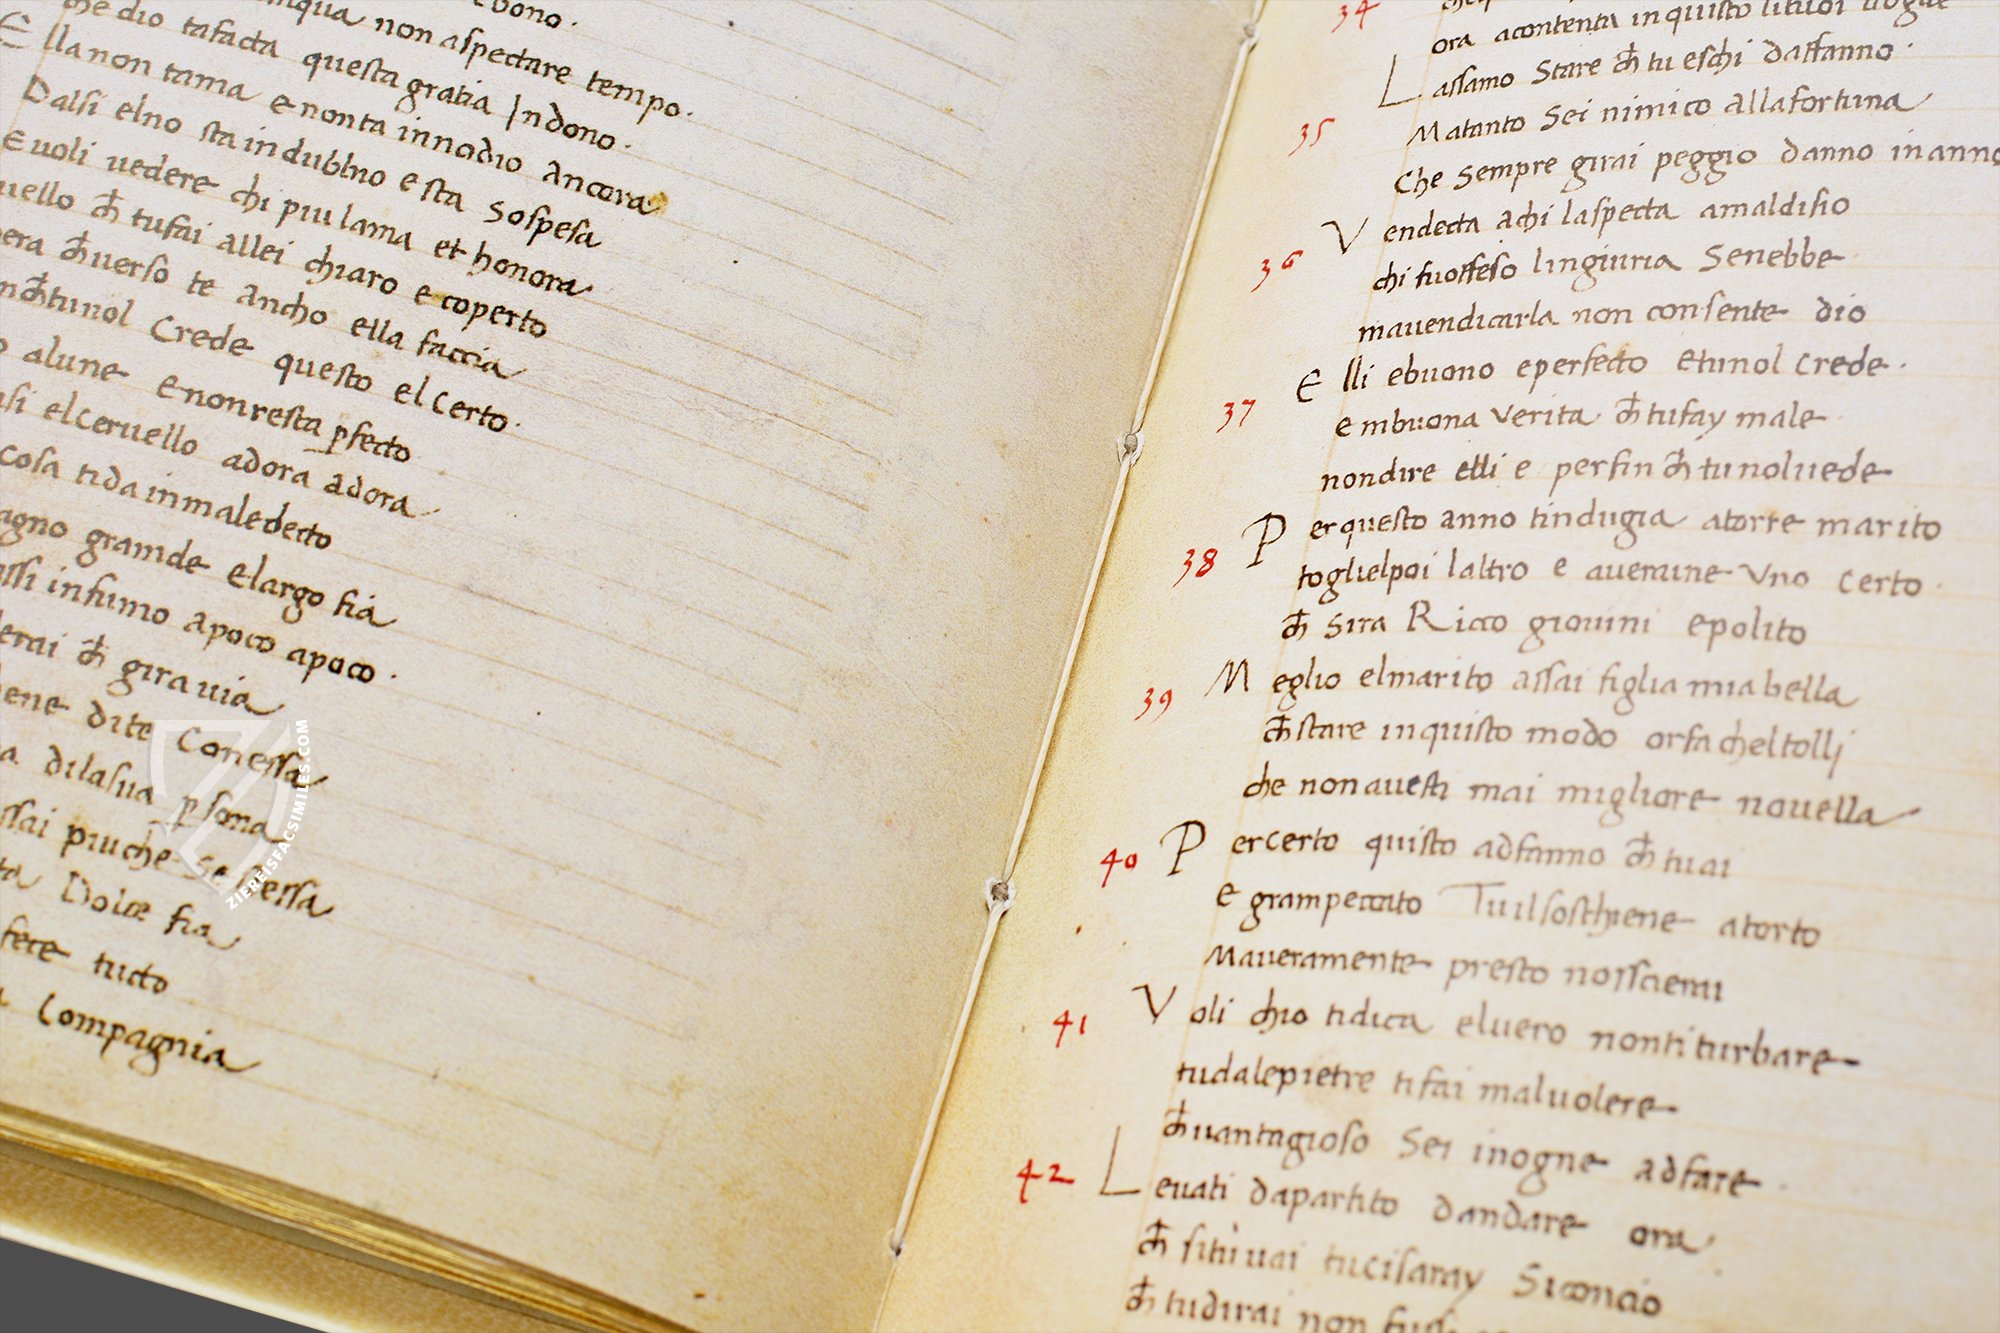 non aspectare tempo.
che dio tafacta questa gratia Indono.
Ella non tama e nonta innodio Ancora
Dalsi elno sta indubbno e sta Sospesa
E uoli uedere chi piu lama et honora
ch tufai allei chiaro e coperto
chuerso te ancho ella faccia
Crede questo el Certo.
alune e nonresta pfecto
elceruello adora adora
cosa tida inmaledecto
grande elargo fia
infumo apoco apoco.
ch girauia
dite Conessa
dilasua psona
piuche se
Dolce fia
fece tucto
Compagnia
34
ora acontenta inquisto
Lassamo Stare ch tu eschi daffanno.
35
Matanto Sei nimico allafortuna
Che Sempre girai peggio danno inanno
36
Vendecta achi laspecta amaldisio
chi fuoffeso lingiuria Senebbe
mauendicarla non consente dio
37
Elli ebuono eperfecto etunol crede.
embuona verita ch tufay male
nondire elli e perfin ch tunoluede
38
Perquesto anno tindugia atorre marito
toglielpoi laltro e auerune Vno certo.
ch sira Ricco giouini epolito
39
Meglio elmarito assai figlia mia bella
ch stare inquisto modo orfacheltolli
che nonauesti mai migliore nouella
40
Percerto quisto adfanno ch tuai
e grampeccato Tuilsosthiene atorto
Maueramente presto
41
Voli chio tidica eluero nontiturbare
tudalepietre tifai maluolere
ch uantagioso Sei inogne adfare
42
Leuati dapartito dandare ora
ch situuai tucisaray Siconcio
ch tudirai non
ZIEREISFACSIMILES.COM